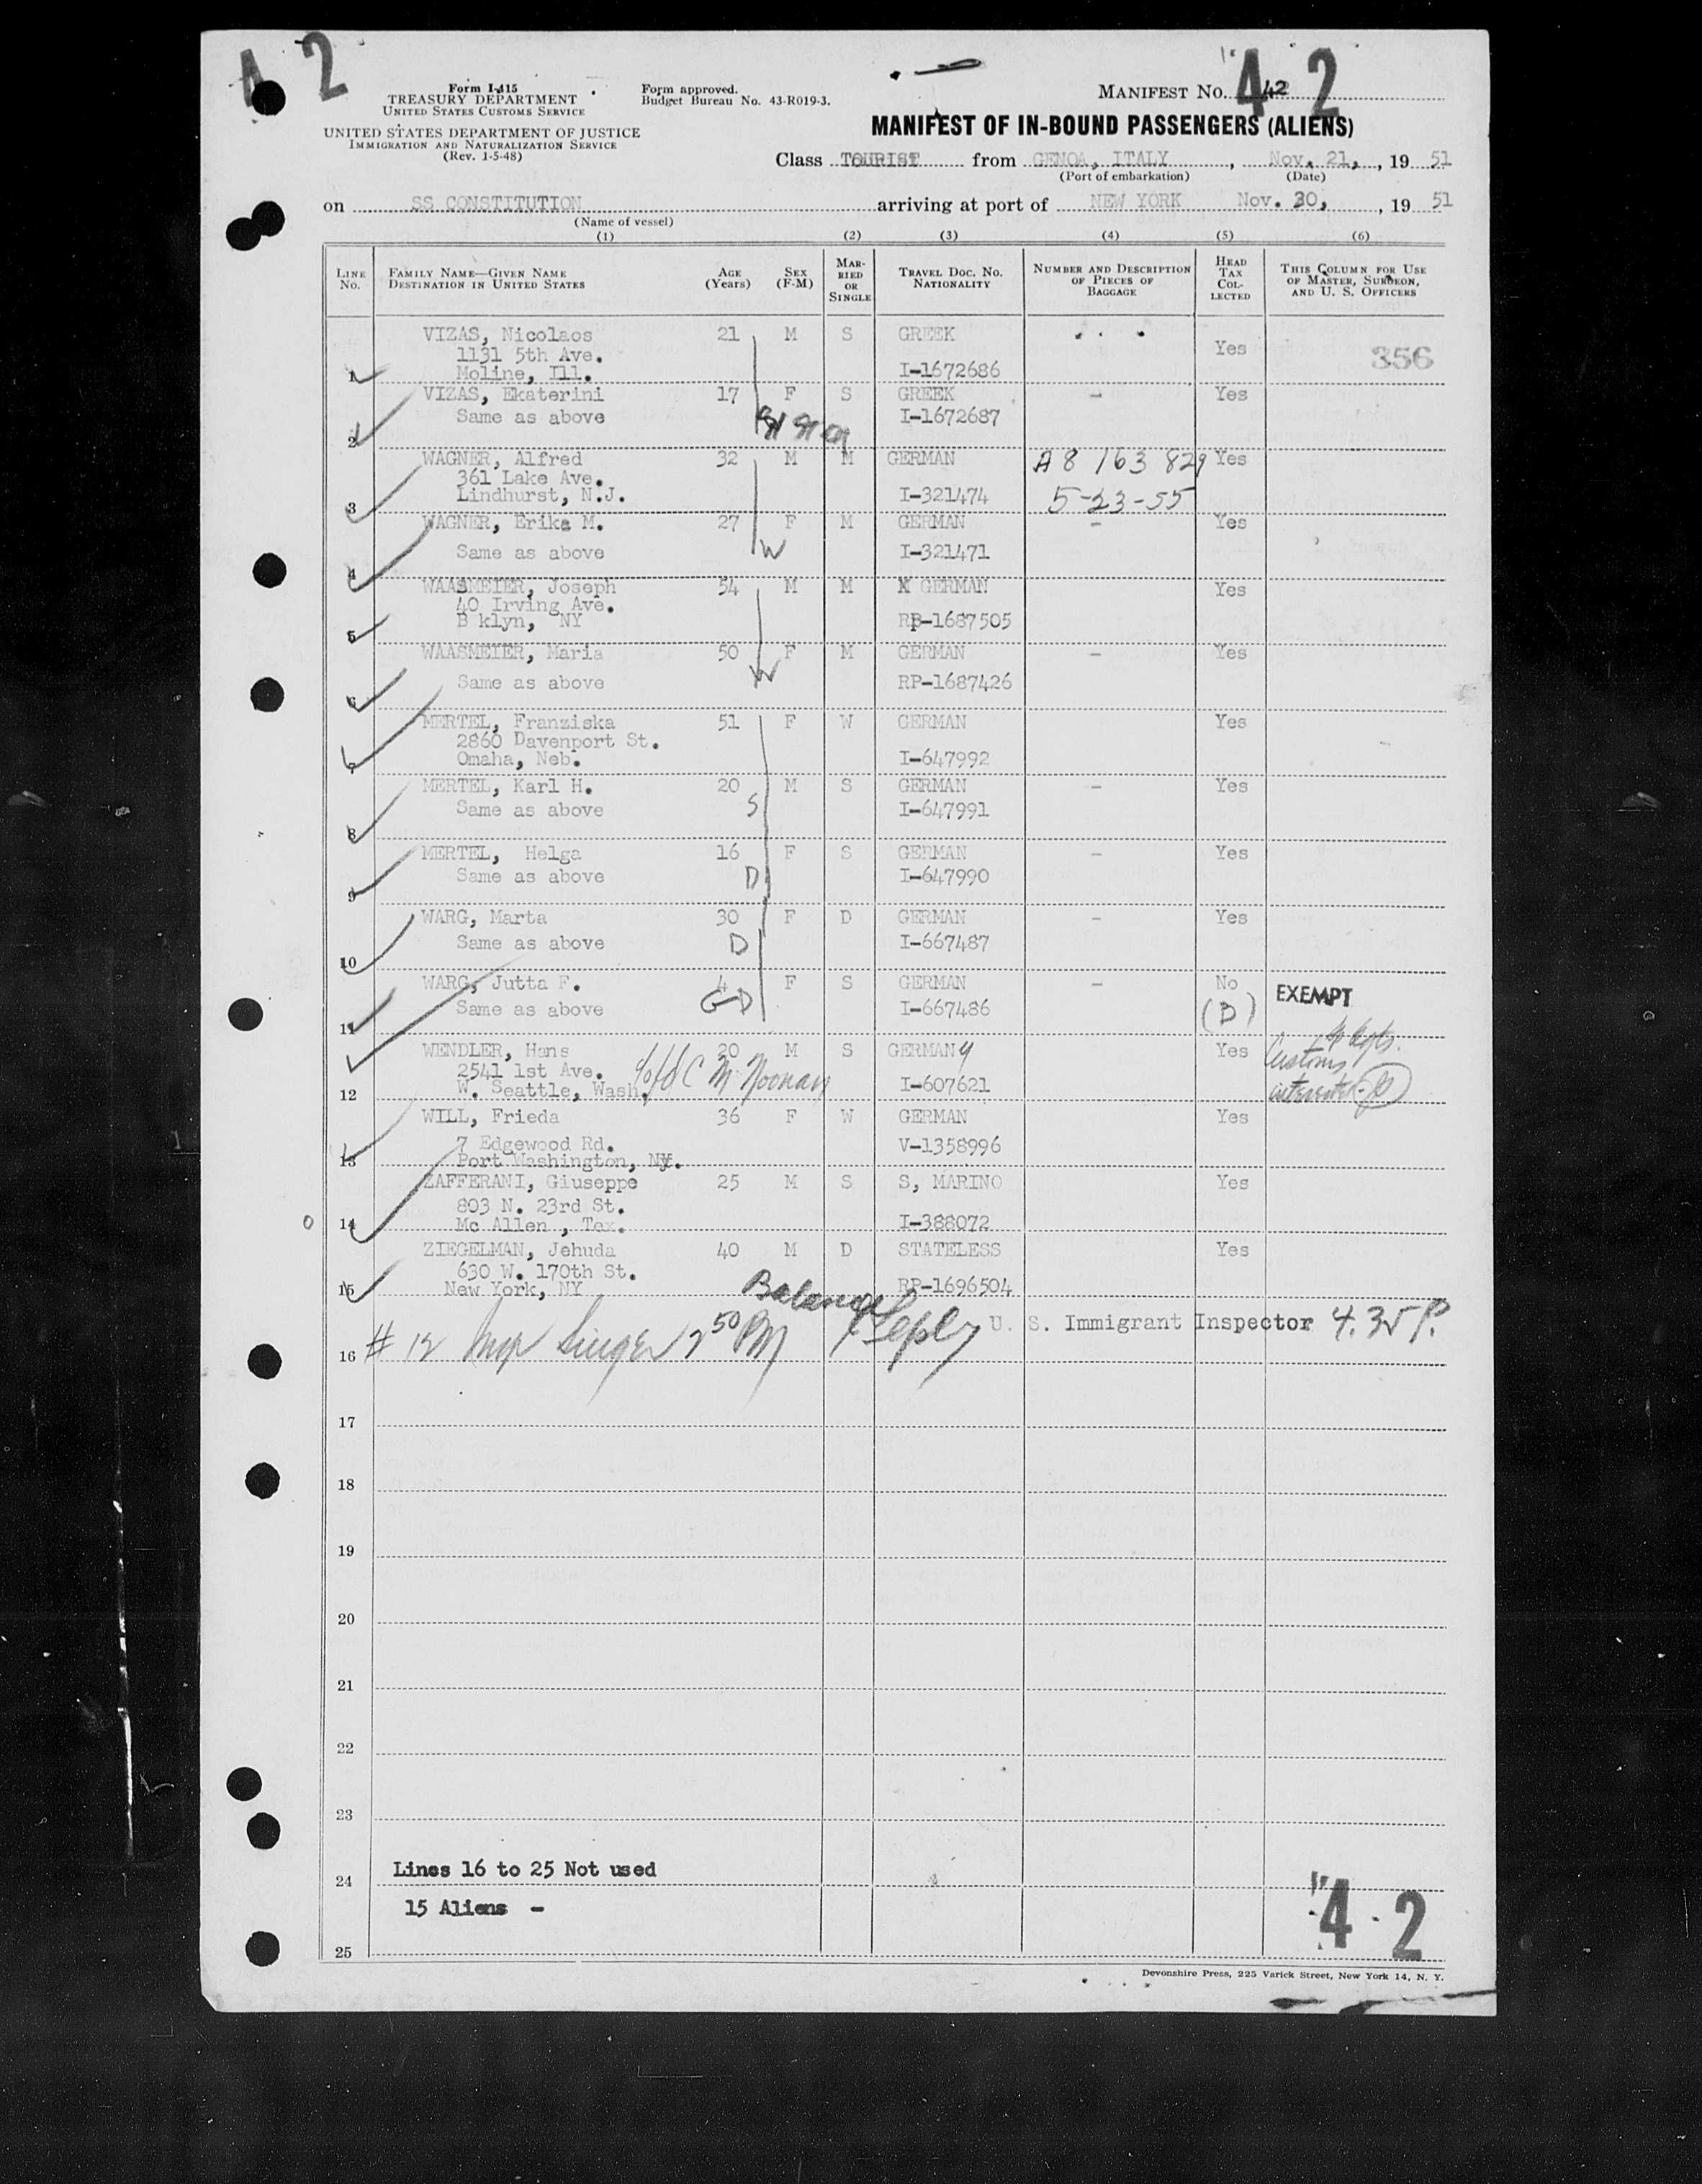 42
Form I-415
TREASURY DEPARTMENT
UNITED STATES CUSTOMS SERVICE
UNITED STATES DEPARTMENT OF JUSTICE
IMMIGRATION AND NATURALIZATION SERVICE
(Rev. 1-5-48)
Form approved.
Budget Bureau No. 43-R019-3.
MANIFEST No. 42
42
MANIFEST OF IN-BOUND PASSENGERS (ALIENS)
Class TOURIST from GENOA, ITALY, Nov. 21, , 19 51
(Port of embarkation) (Date)
on SS CONSTITUTION arriving at port of NEW YORK Nov. 30, , 19 51
(Name of vessel)
(1) (2) (3) (4) (5) (6)
LINE No. FAMILY NAME—GIVEN NAME DESTINATION IN UNITED STATES AGE (Years) SEX (F-M) MARRIED OR SINGLE TRAVEL DOC. No. NATIONALITY NUMBER AND DESCRIPTION OF PIECES OF BAGGAGE HEAD TAX COLLECTED THIS COLUMN FOR USE OF MASTER, SURGEON, AND U. S. OFFICERS
VIZAS, Nicolaos 21 M S GREEK
1131 5th Ave. Yes 356
1 Moline, Ill. I-1672686
VIZAS, Ekaterini 17 F S GREEK - Yes
Same as above I-1672687
2
WAGNER, Alfred 32 M M GERMAN A8 163 829 Yes
361 Lake Ave.
3 Lindhurst, N.J. I-321474 5-23-55
WAGNER, Erika M. 27 F M GERMAN - Yes
Same as above W I-321471
4
WAASMEIER, Joseph 54 M M X GERMAN Yes
40 Irving Ave.
5 B klyn, NY RP-1687505
WAASMEIER, Maria 50 F M GERMAN - Yes
Same as above W RP-1687426
6
MERTEL, Franziska 51 F W GERMAN Yes
2860 Davenport St.
7 Omaha, Neb. I-647992
MERTEL, Karl H. 20 M S GERMAN - Yes
Same as above S I-647991
8
MERTEL, Helga 16 F S GERMAN - Yes
Same as above D I-647990
9
WARG, Marta 30 F D GERMAN - Yes
Same as above D I-667487
10
WARG, Jutta F. 4 F S GERMAN - No EXEMPT
Same as above GD I-667486 (D)
11
WENDLER, Hans 20 M S GERMANY Yes Customs
2541 1st Ave. Noonan
12 W. Seattle, Wash. I-607621
WILL, Frieda 36 F W GERMAN Yes
7 Edgewood Rd. V-1358996
13 Port Washington, NY.
ZAFFERANI, Giuseppe 25 M S S, MARINO Yes
803 N. 23rd St.
14 Mc Allen , Tex. I-388072
ZIEGELMAN, Jehuda 40 M D STATELESS Yes
630 W. 170th St.
15 New York, NY RP-1696504
Balance
U. S. Immigrant Inspector 4.35 P.
16 # 12 Insp Singer 2 50 PM
17
18
19
20
21
22
23
Lines 16 to 25 Not used
24
15 Aliens -
42
25
Devonshire Press, 225 Varick Street, New York 14, N. Y.